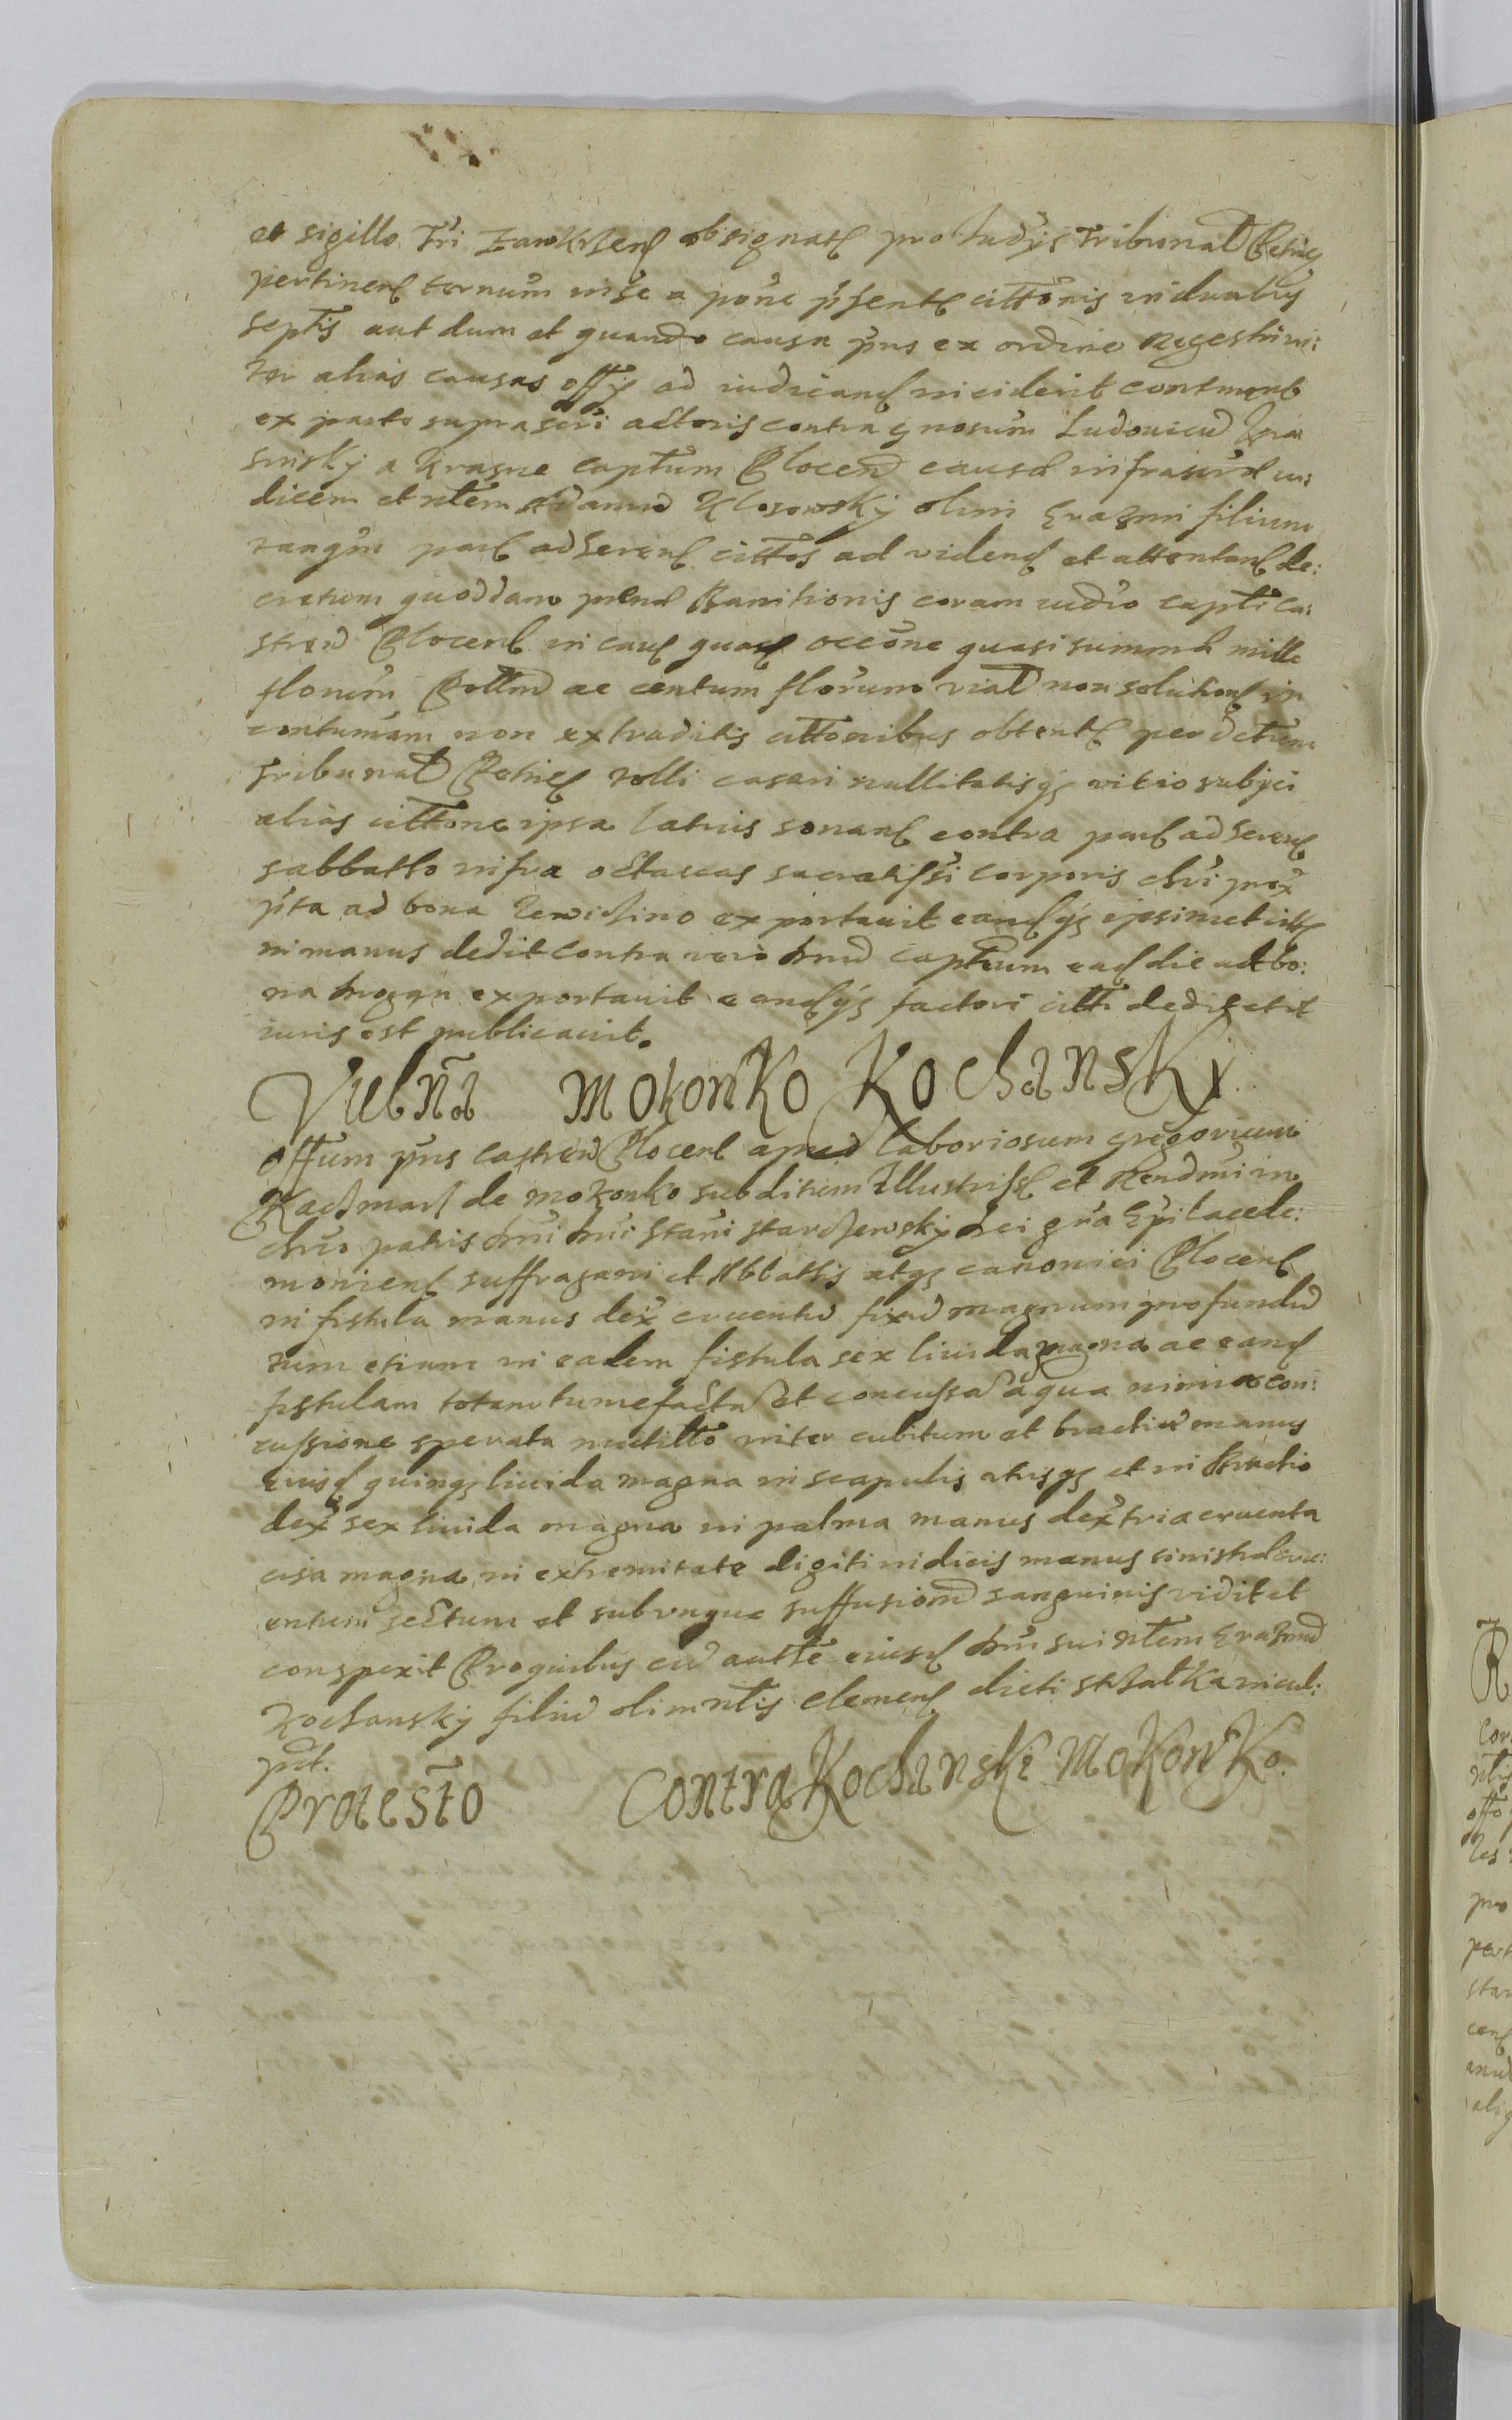 et sigillo Tri Zawkrzen obsignat pro Judijs Tribunal Petric
pertinen ternum inse a pone psente cittonis in duabus
septis aut dum et quando causa pns ex ordine Regestri in:
ter alias causas offy ad iudicand inciderit continent
ex parte suprascri actoris contra gnosum Ludouicu Kra
sinsky a Krasne captum Plocen causa infrascr iu:
dicem et ntem Adamu Klosowsky olim Erazmi filium
tangm part adseren cittos ad viden et attentan de:
cretum quoddam pnend Banitionis coram iudio capti ca:
stren Plocen in caus quad occone quasi summa mille
florum Pollm ac centum florum viat non solution in
contumam non extraditis cittonibus obtent per detum
Tribunal Petric tolli casari nullitatisq vitio subjci
alias citone ipsa latius sonan contra part adseren
sabbatho infra octauas sacratissi Corporis chri prox
pta ad bona exportauit eandq ipsimet citt
in manus dedit contra vero dnm captum ead die ad bo:
na exportauit eandq factori citti dedit et ut
iuris est publicauit.
Vulna Mokowko Kochansky
offium pns Castren Plocen apud laboriosum Gregorium
Kaczmarz de Mokowko subditum Illustriss et Rendmi in
chro patris dni dni Stani Starczewsky dei gra Epi Lacede:
monien suffragani et Abbatis atq canonici Plocen
in fistula manus dex cruentu fixu magnum profundu
tum etiam in eadem fistula sex liuida magna ac eand
fistulam totam tumefacta et concussa a qua nimia con:
cussione sperata mutilto inter cubitum et brachiu manus
eiusd quinq liuida magna in scapulis utrisq et in Brachio
dex sex liuida magna in palma manus dex tria cruenta
cisa magna in extremitate digiti indicis manus sinistra cru:
entum sectum et sub ungue suffusiond sanguinis vidit et
conspexit Pro quibus eid autte eiusd dni sui ntem Erazmu
Kochansky filiu olim ntis Clemen dicti inculi:
pat.
Protesto Contra Kochanski Mokowko.